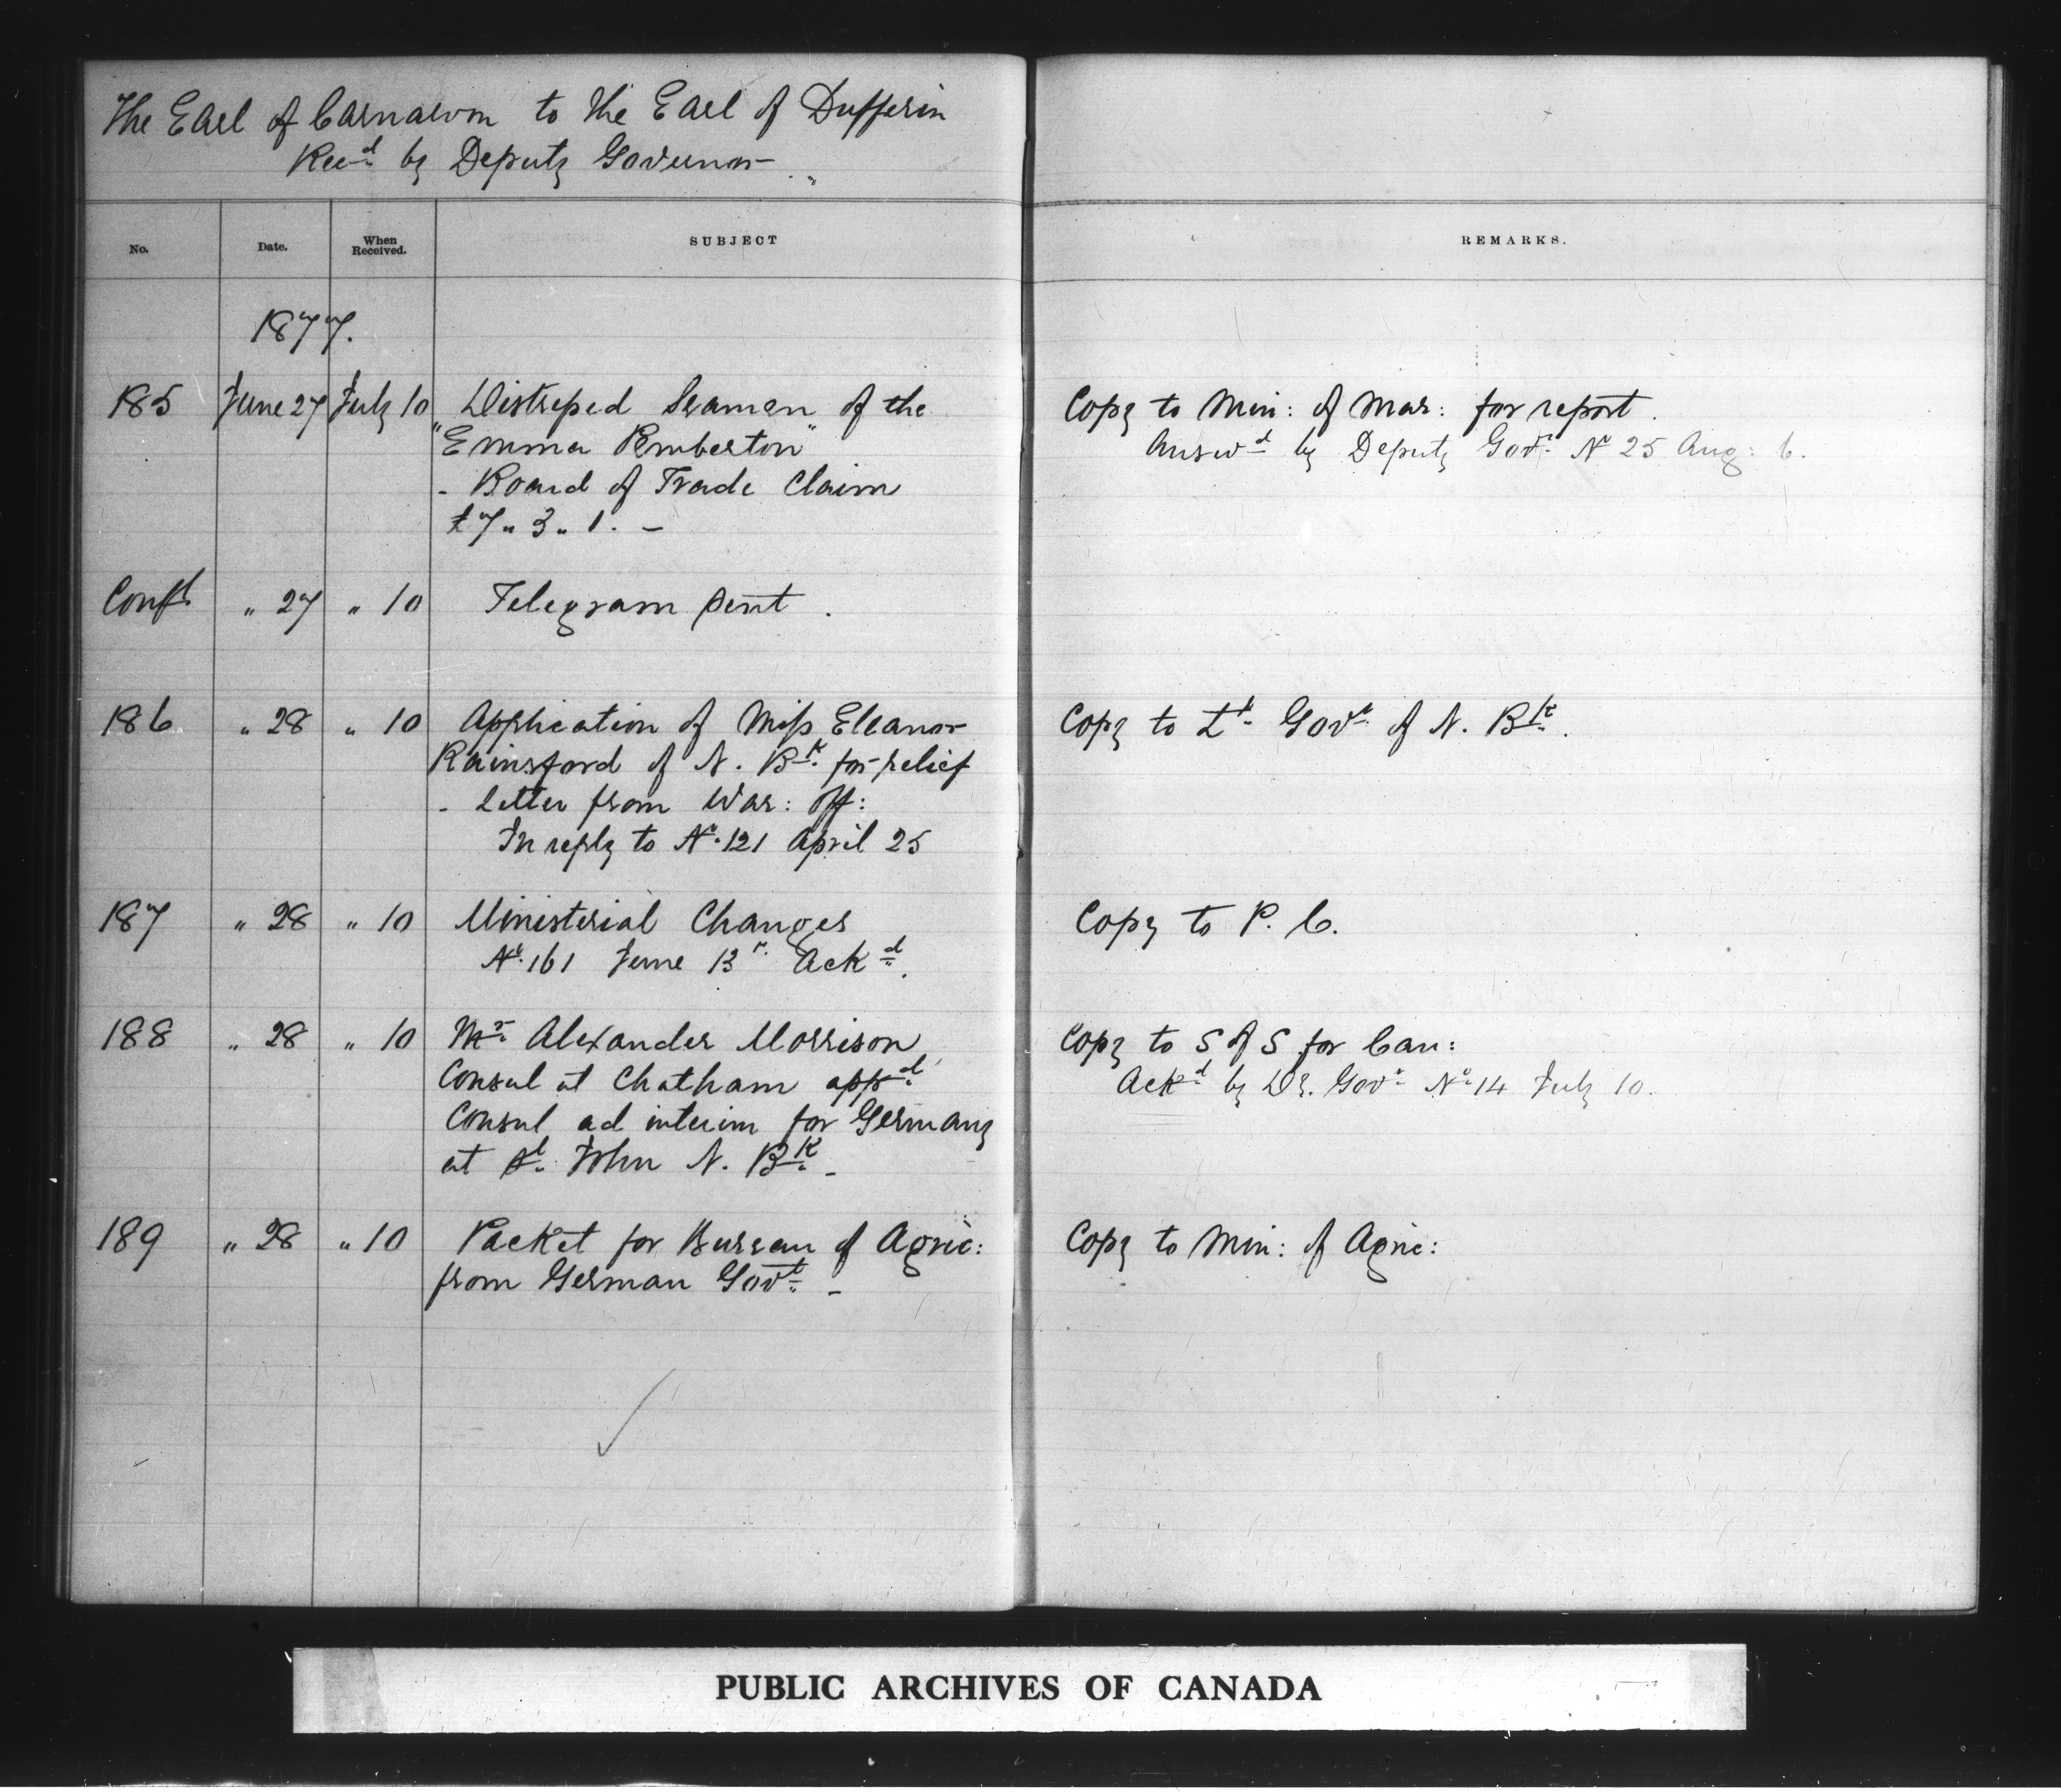 The Earl of Carnarvon to the Earl of Dufferin
Recd by Deputy Governor
No. Date. When Received. SUBJECT REMARKS.
1877.
185 June 27 July 10 Distressed Seaman of the Copy to Min: of Mar: for report.
"Emma Pemberton" Answd by Deputy Govr No 25 Aug: 6.
- Board of Trade Claim
£7 " 3 " 1. -
Confl " 27 " 10 Telegram sent.
186 " 28 " 10 Application of Miss Eleanor Copy to Lt Govr of N. Bk.
Rainsford of N. Bk for relief
- Letter from War: Off:
In reply to No. 121 April 25
187 " 28 " 10 Ministerial Changes Copy to P. C.
No. 161 June 13 Ackd.
188 " 28 " 10 Mr Alexander Morrison Copy to S of S for Can:
Consul at Chatham appd Ackd by Dy. Govr No 14 July 10.
Consul ad interim for Germany
at St. John N. Bk -
189 " 28 " 10 Packet for Bureau of Agric: Copy to Min: of Agric:
from German Govt. -
PUBLIC ARCHIVES OF CANADA